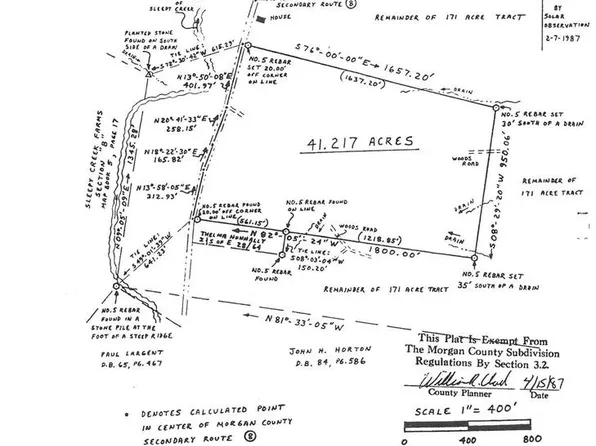 OF
SLEEPY CREEK
SECONDARY ROUTE 8
HOUSE
REMAINDER OF 171 ACRE TRACT
BY
SOLAR
OBSERVATION
2-7-1987
PLANTED STONE
FOUND ON SOUTH
SIDE OF A DRAIN
TIE LINE:
615.29'
DRAIN
N 13°-50'-08"E
401.97'
NO. 5 REBAR
SET 20.00'
OFF CORNER
ON LINE
S 76°-00'-00"E 1657.20'
(1637.20')
DRAIN
NO. 5 REBAR SET
30' SOUTH OF A DRAIN
N 20°-41'-33"E
258.15'
N 18°-22'-30"E
165.82'
N 13°-58'-05"E
312.93'
SLEEPY CREEK FARMS
SECTION "B"
MAP BOOK 5, PAGE 17
TIE LINE:
1345.28'
41.217 ACRES
WOODS
ROAD
S 08°-29'-20"W 950.06'
REMAINDER OF
171 ACRE TRACT
DRAIN
NO. 5 REBAR FOUND
20.00' OFF CORNER
ON LINE
NO. 5 REBAR FOUND
ON LINE
(561.15')
DRAIN
WOODS ROAD
N 82°-05'-24"W
(1218.85')
1800.00'
DRAIN
THELMA NUNNALLY
TIE LINE:
S 08°-03'-04"W
150.20'
NO. 5 REBAR
FOUND
TIE LINE:
641.23'
NO. 5 REBAR SET
35' SOUTH OF A DRAIN
REMAINDER OF 171 ACRE TRACT
NO. 5 REBAR
FOUND IN A
STONE PILE AT THE
FOOT OF A STEEP RIDGE
N 81°-33'-05"W
PAUL LARGENT
D.B. 65, PG. 467
JOHN H. HORTON
D.B. 84, PG. 586
This Plat Is Exempt From
The Morgan County Subdivision
Regulations By Section 3.2.
4/15/87
County Planner Date
SCALE 1" = 400'
0 400 800
• DENOTES CALCULATED POINT
IN CENTER OF MORGAN COUNTY
SECONDARY ROUTE 8